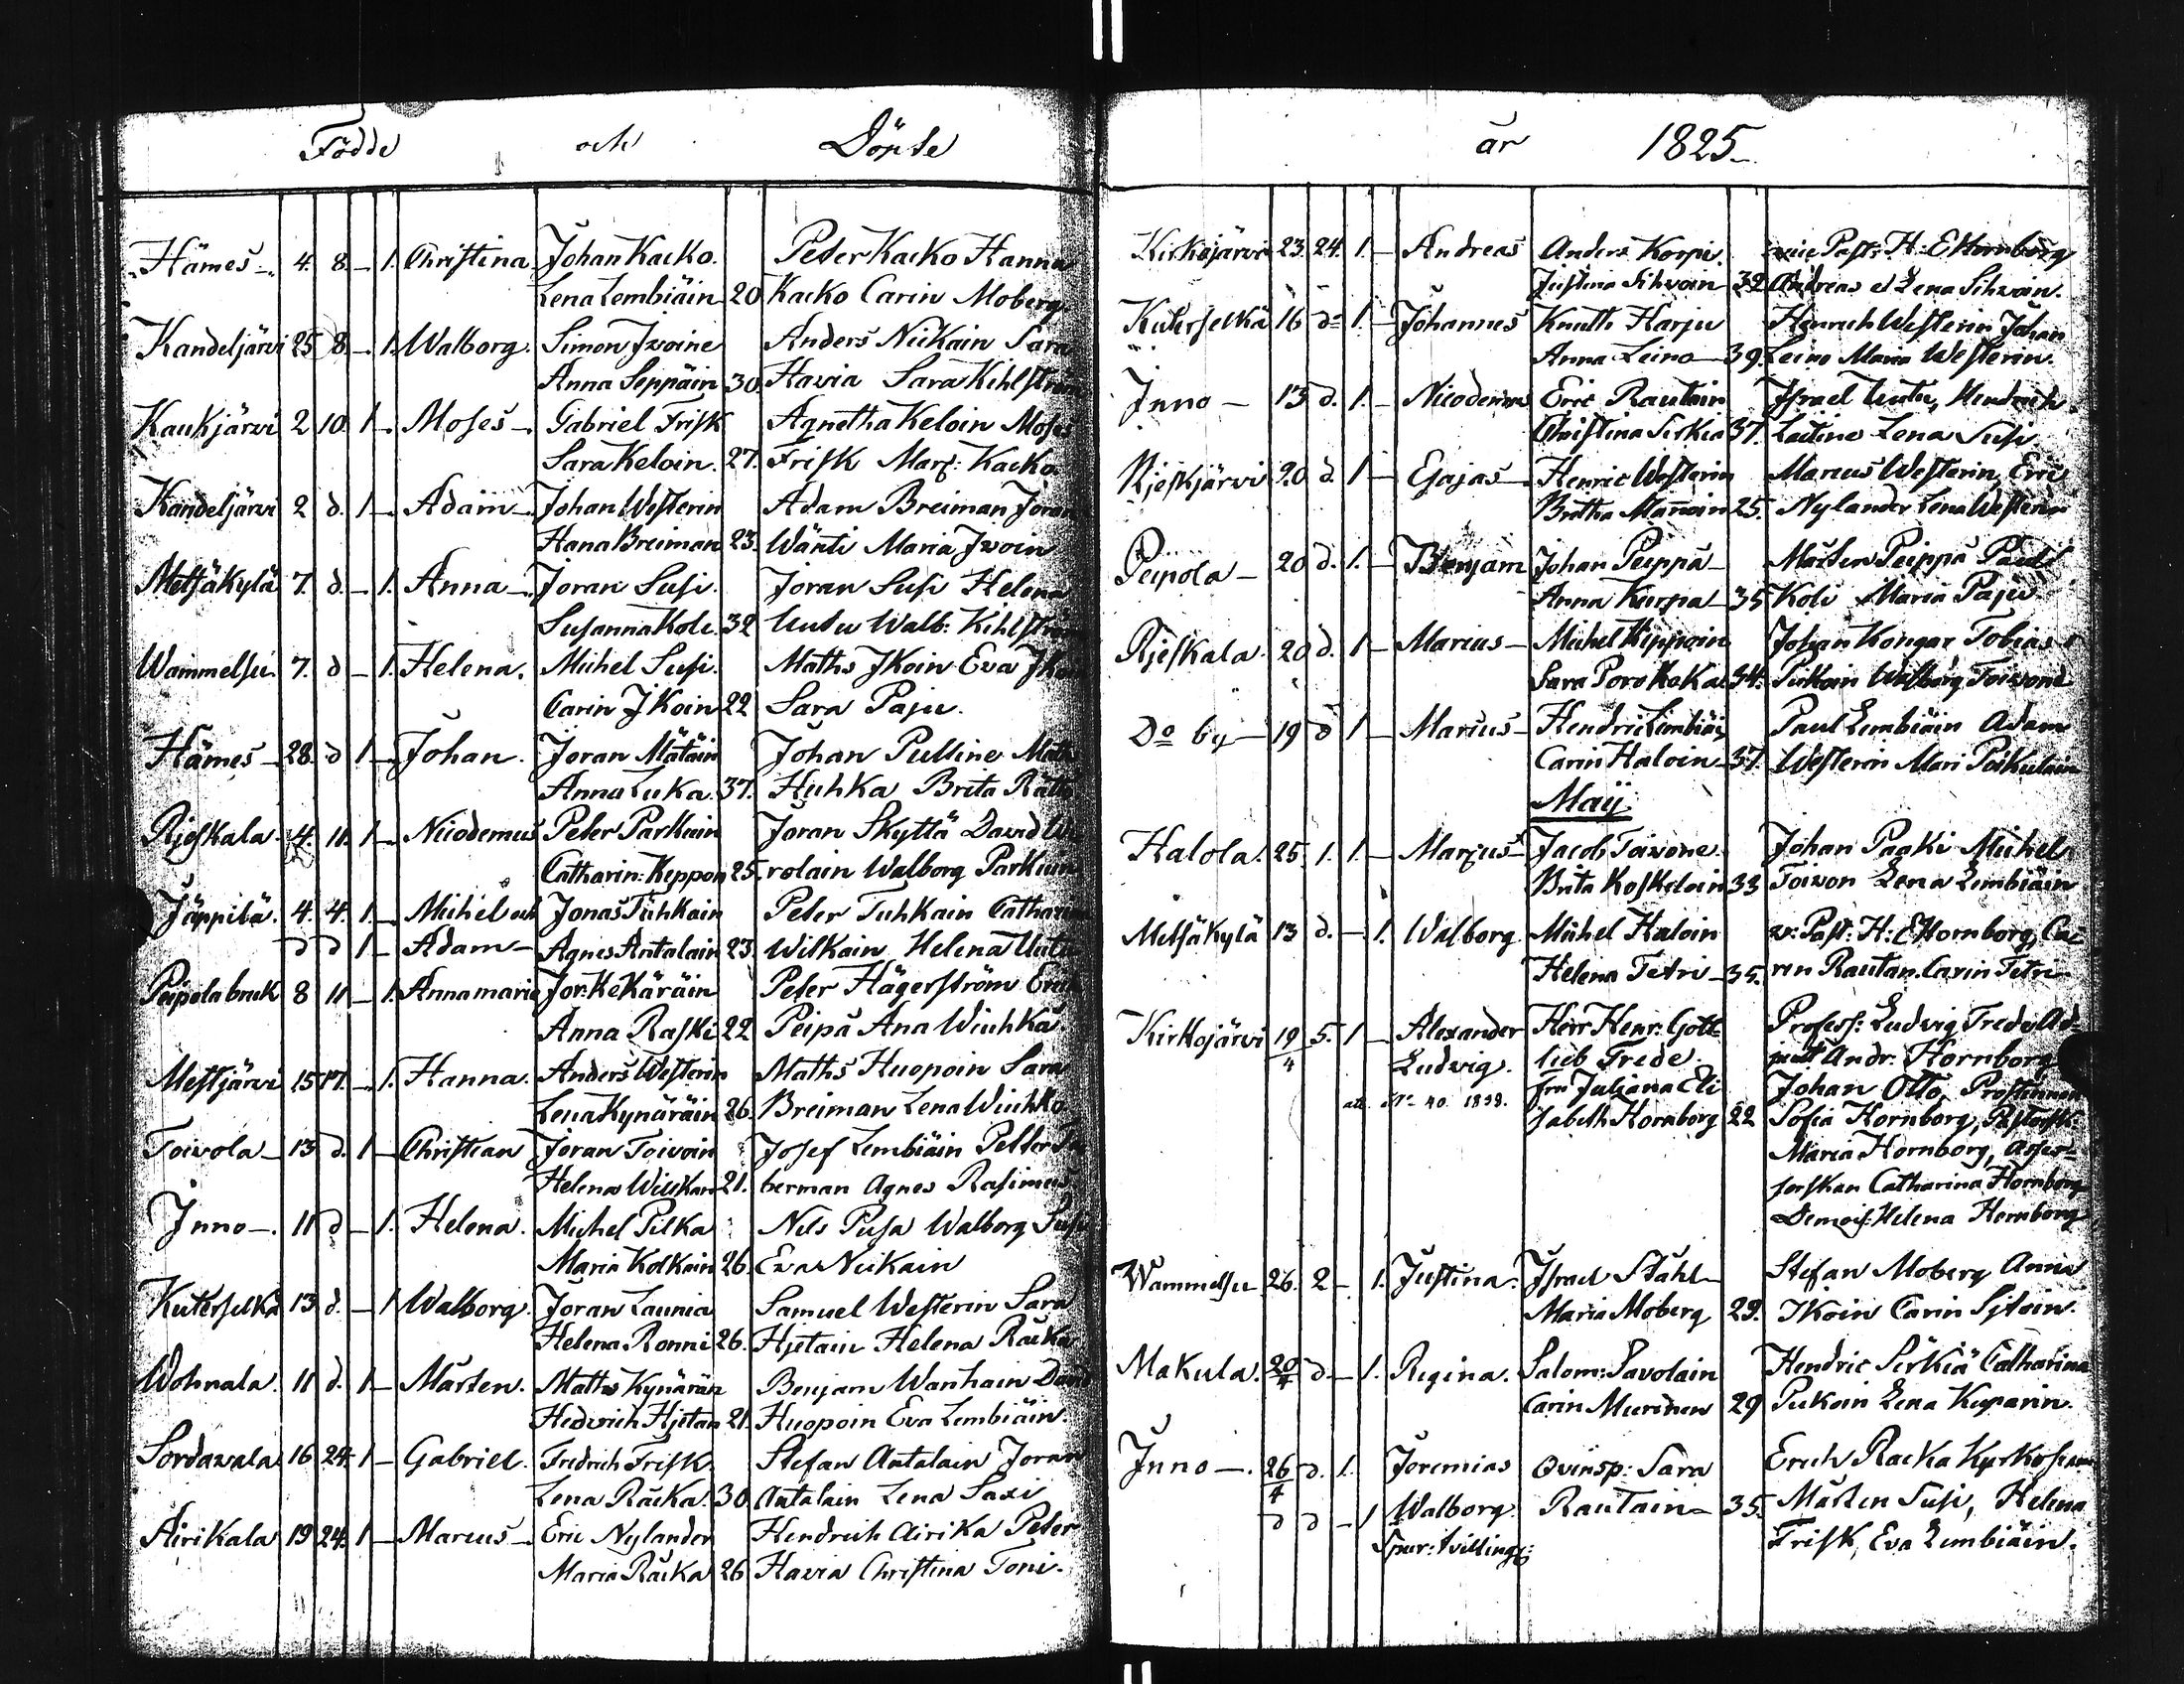 Födde och Döpte
Hämes 4. 8. – 1. Christina Johan Kacko. Peter Kacko Hanna
Lena Lembiäin 20 Kacko Carin Moberg.
Kandeljärvi 25 8. – 1. Walborg. Simon Ivoine Anders Nickain Sara
Anna Seppäin 30. Havia Sara Kihlström
Kaukjärvi 2 10. 1 – Moses – Gabriel Frisk Agnetha Keloin Moses
Sara Keloin. 27. Frisk Marg: Kacko
Kandeljärvi 2 d. 1 – Adam – Johan Westerin Adam Breiman Joran
Hana Breiman 23. Wänti Maria Ivoin
Metsäkylä 7. d. – 1. Anna – Joran Susi. Joran Susi Helena
Susanna Koli. 32 Uutu Walb: Kihlström
Wammelsu 7. d – 1. Helena. Michel Susi. Maths Ikoin Eva
Carin Ikoin 22 Sara Paju.
Hämes – 28. d 1 – Johan. Joran Mätäin Johan Pulline
Anna Luka. 37. Huhka Brita
Rjeskala. 4. 11. 1 – Nicodemus Peter Parkain Joran Skyttä David
Catharin: Keppon 25. rolain Walborg Parkiain
Jäppilä. 4. 4. 1. – Michel och Jonas Tuhkain Peter Tuhkain
d d 1 – Adam – Agnes Antalain 23. Wilkain Helena
Peipola bruk 8 11 – 1. Annamaria Jor: Kekäräin Peter Hägerström
Anna Raski 22 Peipä Ana Wiuhka
Mestjärvi 15 17. – 1. Hanna. Anders Westerin Maths Huopoin Sara
Lena Kynäräin 26. Breiman Lena Wiuhko
Toivola – 13 d. 1 – Christian Joran Toivoin Josef Lembiäin Petter
Helena Wilikan 21. berman Agnes Rasimus
Inno –. 11 d – 1. Helena. Michel Pilka Nils Pusa Walborg Susi
Maria Kolkain 26. Eva Nickain
Kuterselkä 13 d. – 1 Walborg. Joran Launia Samuel Westerin Sara
Helena Ronni 26. Hjetain Helena Räcka
Wohnala. 11 d. 1 – Mårten. Maths Kynärän Benjam Wanhain David
Hedvich Hjetan 21. Huopoin Eva Lembiäin.
Sordavala 16 24. 1 – Gabriel. Fredrich Frisk. Stefan Antalain Joran
Lena Räcka. 30. Antalain Lena Saxi
Airikala 19 24. 1 – Marcus – Eric Nylander Hendrich Airika Peter
Maria Räcka 26 Havia Christina Toni.
år 1825 –
Kirkojärvi 23. 24. 1. – Andreas Anders Korpi. Past: H: E Hornborg
Justina Sihvoin 32 Andreas et Lena Sihvoin.
Kuterselkä 16 do 1. – Johannes Knuth Harju Henrich Westerin Johan
Anna Leino – 39. Leino Maria Westerin.
Inno – 13 d. 1. – Nicodemus Eric Rautain Israel Uutu, Hendrich
Christina Sirkia 37. Laitine Lena Susi
Rjeskjärvi 20 d. 1 – Esajas – Henric Westerin Marcus Westerin, Eric
Britha Mannoin 25. Nylander Lena Westerin
Peipola – 20 d. 1. – Benjam Johan Peippä – Mårten Peippä Paul
Anna Kurpa – 35 Koli Maria Paju
Rjeskala. 20 d. 1 – Marcus – Michel Kippoin Johan Kongar Tobias
Sara Poro Koka 34. Pirkoin Walborg Toivond
Do by – 19 d 1 – Marcus – Hendric Lembiäi Paul Lembiäin Adam
Carin Haloin – 37. Westerin Mari Peikulain
Maij
Halola. 25 1. 1. – Marcus – Jacob Toivone. Johan Paaki Michel
Brita Koskeloin 33 Toivon Lena Lembiäin
Metsäkylä 13 d. – 1. Walborg. Michel Haloin v: Past: H: E Hornborg, Ca
Helena Tetri – 35. rin Rautan. Carin Tetri
Kirkojärvi 19/4 5. 1 – Alexander Herr Henr: Gott- Profess: Ludvig Trede Ad-
Ludvig. lieb Trede. junkt Andr. Hornborg
att No 40. Fru Juliana Eli Johan Otto, Prostinnan
sabeth Hornborg 22 Sofia Hornborg, Pastorsk:
Maria Hornborg, Asses-
sorskan Catharina Hornborg
Demois: Helena Hornborg
Wammelsu 26. 2 – 1. Justina. Israel Ståhl – Stefan Moberg Anna
Maria Moberg 29. Ikoin Carin Sitoin.
Makula. 20/4 d – 1. Regina. Salom: Savolain Hendric Sirkiä Catharina
Carin Muurinen 29 Pukoin Lena Kuparin.
Inno –. 26/4 d. 1. Joremias Qvinsp: Sara Erich Racka Kyrkosexm
d d – 1 Walborg. Rautain – 35. Mårten Susi, Helena
Spur: tvillingz: Frisk, Eva Lembiäin.